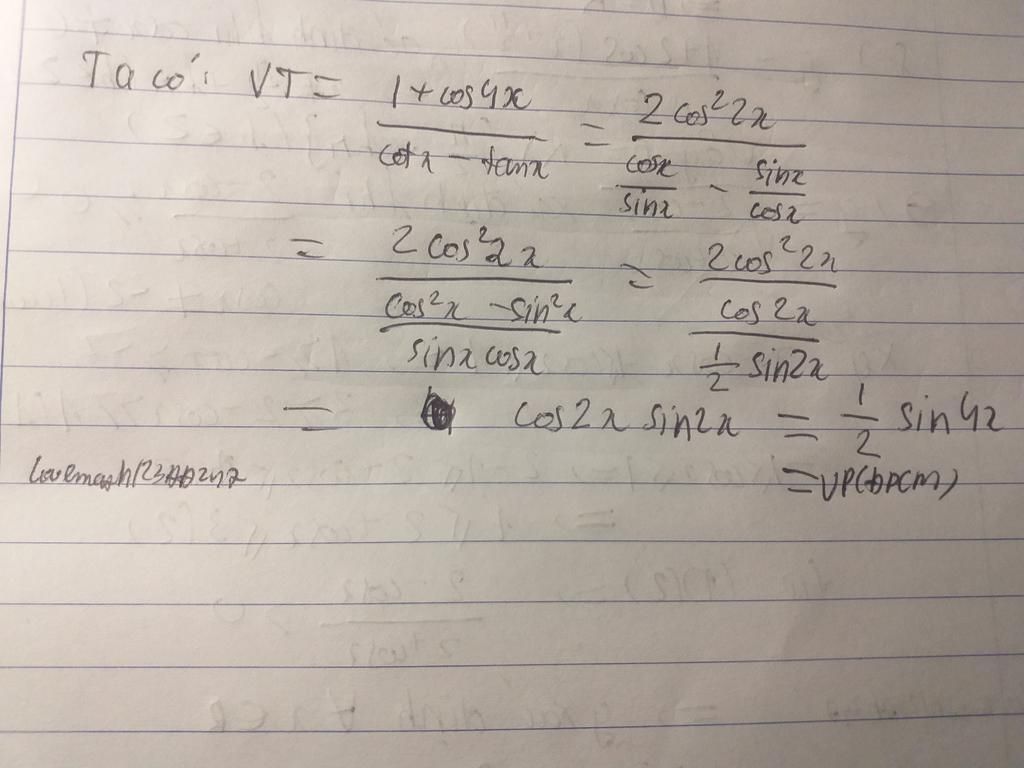 Ta có: VT = (1 + cos4x)/(cotx - tanx) = (2cos²2x)/(cosx/sinx - sinx/cosx)
= (2cos²2x)/((cos²x - sin²x)/(sinx cosx)) = (2cos²2x)/(cos2x/(1/2 sin2x))
= cos2x sin2x = 1/2 sin4x
= VP(đPCM)